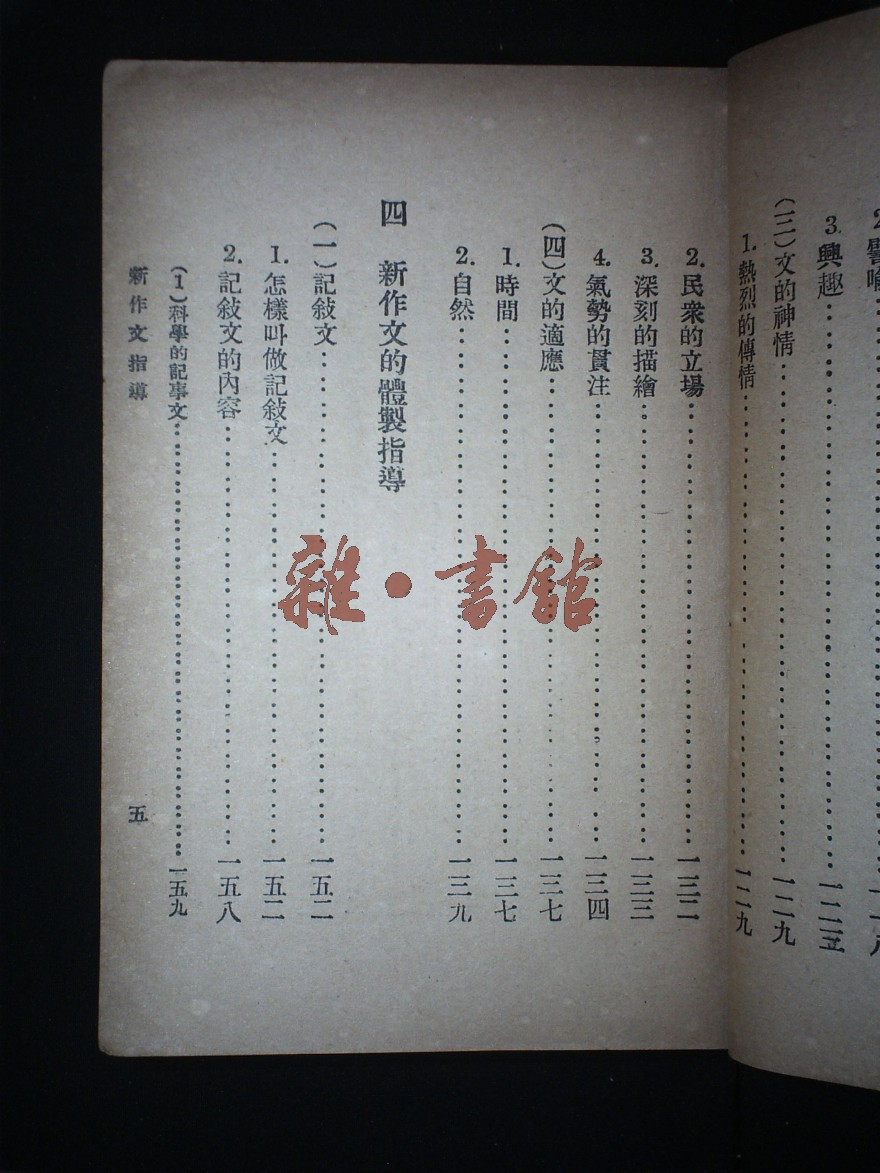 3. 興趣……一二五
(三)文的神情……一二九
1. 熱烈的傳情……一二九
2. 民衆的立場……一三二
3. 深刻的描繪……一三三
4. 氣勢的貫注……一三四
(四)文的適應……一三七
1. 時間……一三七
2. 自然……一三九
四 新作文的體製指導
(一)記敍文……一五二
1. 怎樣叫做記敍文……一五二
2. 記敍文的內容……一五八
(1)科學的記事文……一五九
新作文指導
五
雜·書館